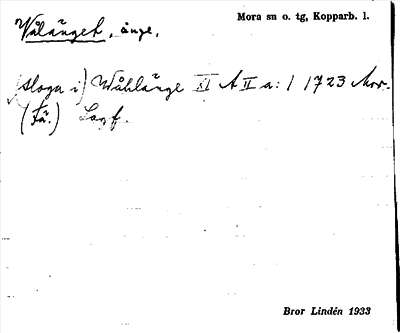 Wålänget, änge,
Mora sn o. tg, Kopparb. l.
(sloga i) Wåhlänge XI A II a: 1 1723 Mor.
(Fä.) Lagf.
Bror Lindén 1933